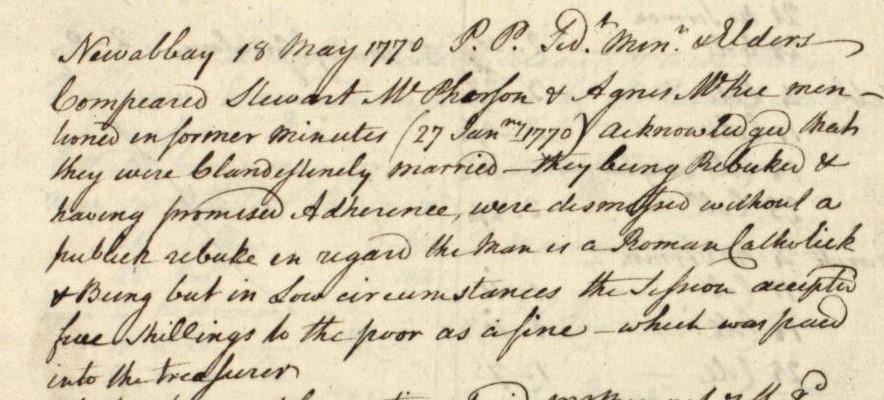 Newabbay 18 May 1770 P. P. Sed.t Minr. & Elders
Compeared Stewart McPherson & Agnes McKie men-
tioned in former minutes (27 Janry 1770) acknowledged that
they were Clandestinely married – they being Rebuked &
having promised Adherence, were dismissed without a
publick rebuke in regard the Man is a Roman Catholick
& Being but in Low circumstances the Session accepted
five shillings to the poor as a fine – which was paid
into the treasurer